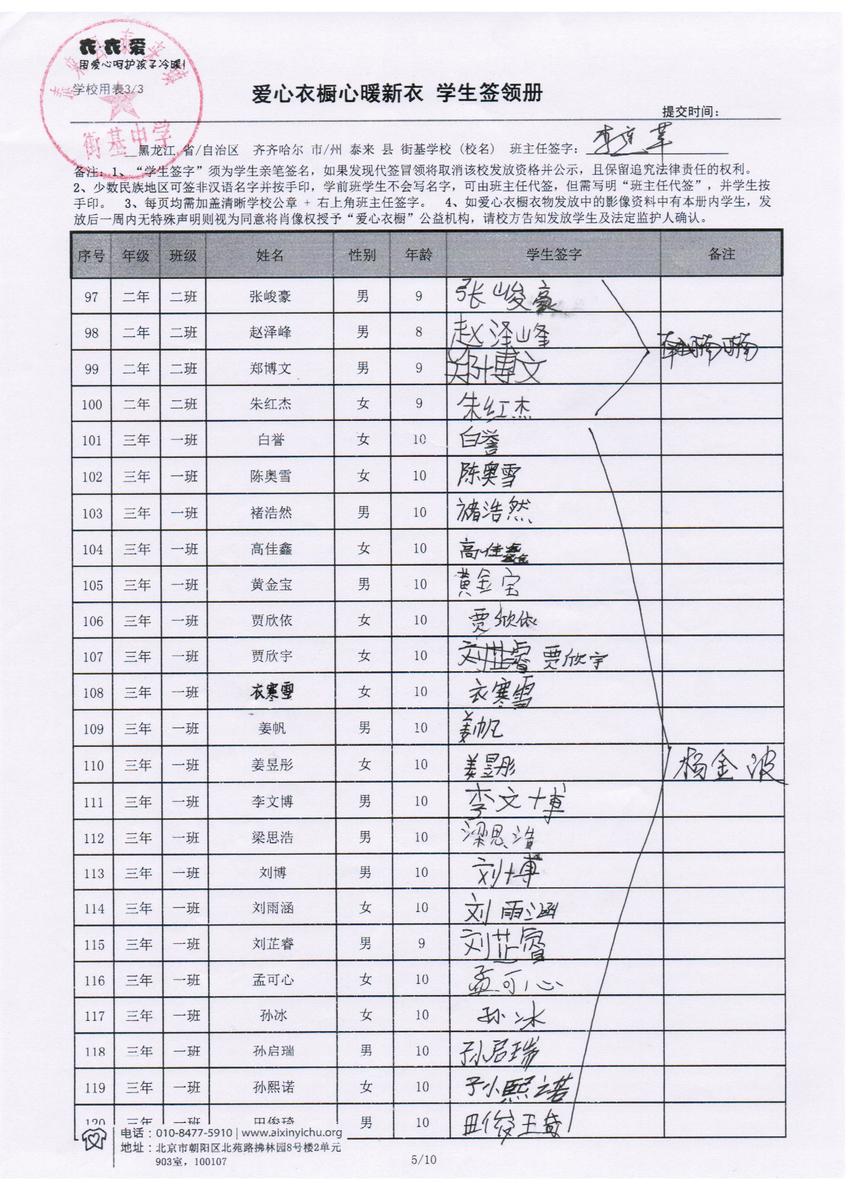 衣衣爱
用爱心呵护孩子冷暖!
学校用表3/3
街基中学
爱心衣橱心暖新衣 学生签领册
提交时间:
黑龙江 省/自治区 齐齐哈尔 市/州 泰来 县 街基学校 (校名) 班主任签字:
备注: 1、“学生签字”须为学生亲笔签名, 如果发现代签冒领将取消该校发放资格并公示, 且保留追究法律责任的权利。
2、少数民族地区可签非汉语名字并按手印, 学前班学生不会写名字, 可由班主任代签, 但需写明“班主任代签”, 并学生按
手印。 3、每页均需加盖清晰学校公章 + 右上角班主任签字。 4、如爱心衣橱衣物发放中的影像资料中有本册内学生, 发
放后一周内无特殊声明则视为同意将肖像权授予“爱心衣橱”公益机构, 请校方告知发放学生及法定监护人确认。
序号 年级 班级 姓名 性别 年龄 学生签字 备注
97 二年 二班 张峻豪 男 9 张峻豪
98 二年 二班 赵泽峰 男 8 赵泽峰
99 二年 二班 郑博文 男 9 郑博文
100 二年 二班 朱红杰 女 9 朱红杰
101 三年 一班 白誉 女 10 白誉
102 三年 一班 陈奥雪 女 10 陈奥雪
103 三年 一班 褚浩然 男 10 褚浩然
104 三年 一班 高佳鑫 女 10 高佳鑫
105 三年 一班 黄金宝 男 10 黄金宝
106 三年 一班 贾欣依 女 10 贾欣依
107 三年 一班 贾欣宇 女 10 刘芷睿 贾欣宇
108 三年 一班 衣寒雪 女 10 衣寒雪
109 三年 一班 姜帆 男 10 姜帆
110 三年 一班 姜昱彤 女 10 姜昱彤 杨金波
111 三年 一班 李文博 男 10 李文博
112 三年 一班 梁思浩 男 10 梁思浩
113 三年 一班 刘博 男 10 刘博
114 三年 一班 刘雨涵 女 10 刘雨涵
115 三年 一班 刘芷睿 男 9 刘芷睿
116 三年 一班 孟可心 女 10 孟可心
117 三年 一班 孙冰 女 10 孙冰
118 三年 一班 孙启瑞 男 10 孙启瑞
119 三年 一班 孙熙诺 女 10 孙熙诺
120 三年 一班 田俊琦 男 10
电话: 010-8477-5910 | www.aixinyichu.org
地址: 北京市朝阳区北苑路拂林园8号楼2单元
903室, 100107
5/10